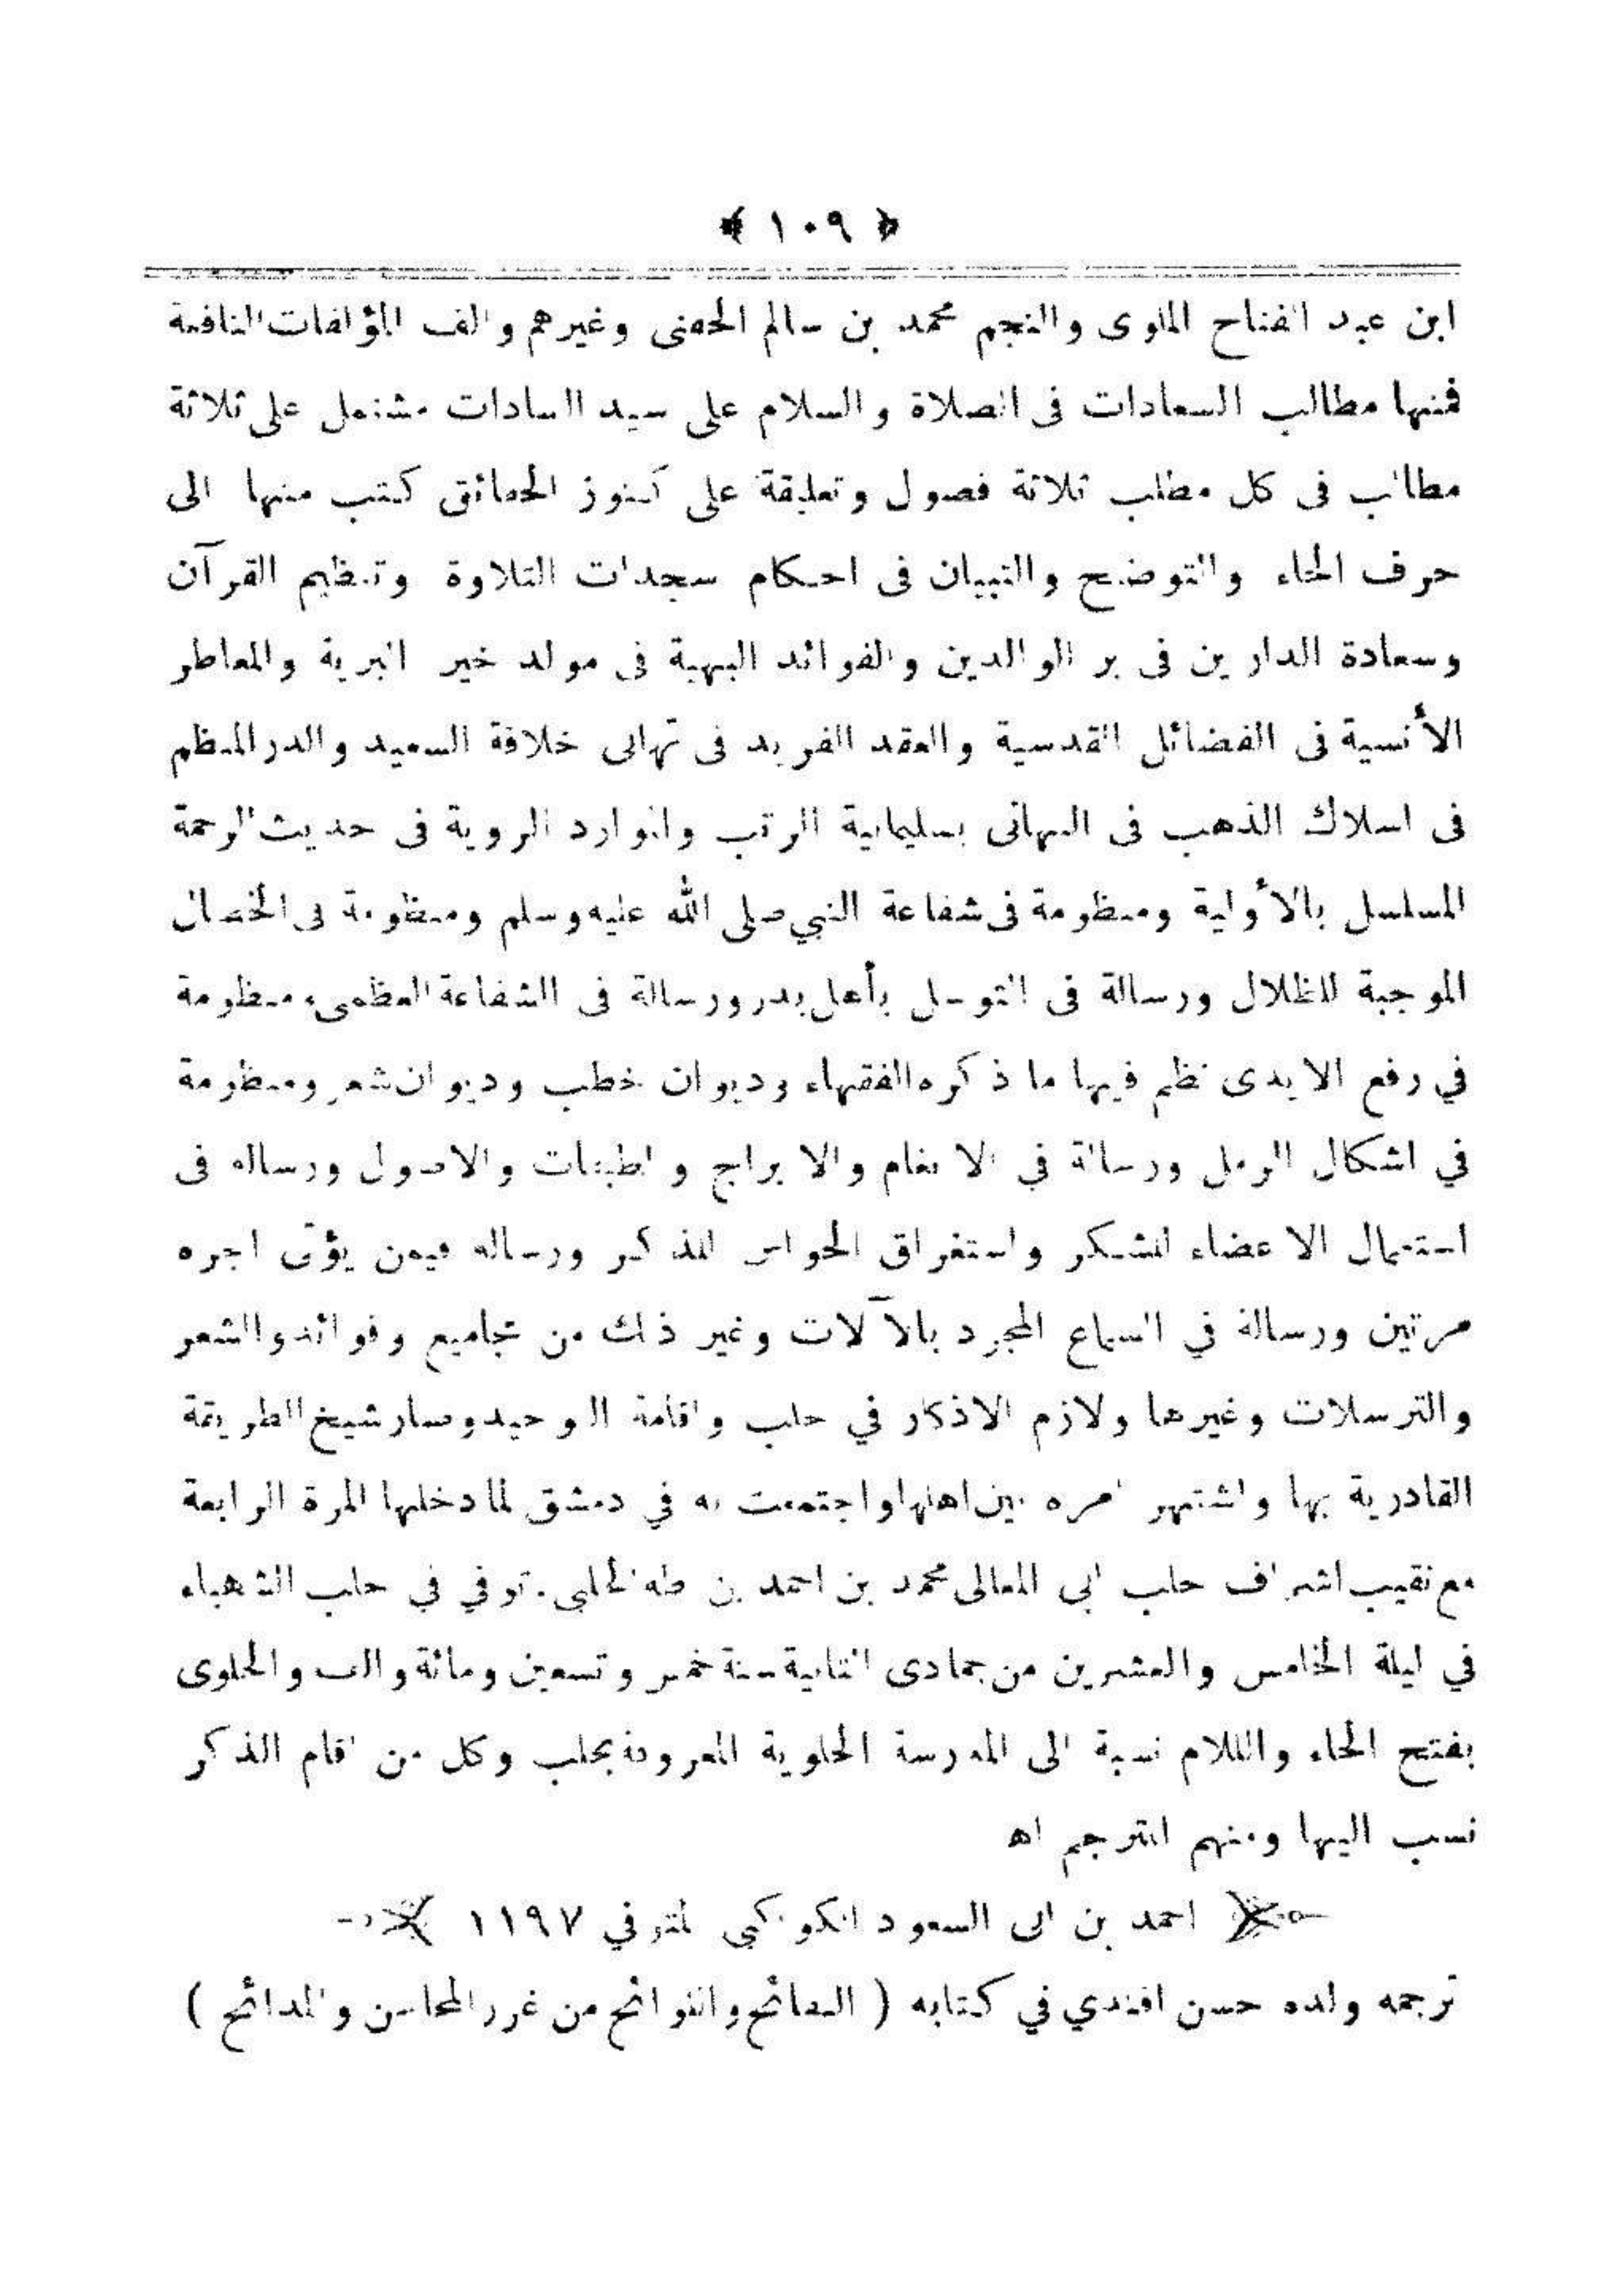 ﴿ ١٠٩ ﴾
ابن عبد الفتاح الملوى والنجم محمد بن سالم الحفنى وغيرهم والف المؤلفات النافعة
فمنها مطالب السعادات فى الصلاة والسلام على سيد السادات مشتمل على ثلاثة
مطالب فى كل مطلب ثلاثة فصول وتعليقة على كنوز الحقائق كتب منها الى
حرف الخاء والتوضيح والتبيان فى احكام سجدات التلاوة وتنظيم القرآن
وسعادة الدارين فى بر الوالدين والفوائد البهية فى مولد خير البرية والمعاطر
الأنسية فى الفضائل القدسية والعقد الفريد فى تهانى خلافة السعيد والدر المنظم
فى اسلاك الذهب فى التهانى بسليمانية الرتب والموارد الروية فى حديث الرحمة
المسلسل بالأولية ومنظومة فى شفاعة النبي صلى الله عليه وسلم ومنظومة فى الخصال
الموجبة للظلال ورسالة فى التوسل بأهل بدر ورسالة فى الشفاعة العظمى ومنظومة
في رفع الايدى نظم فيها ما ذكره الفقهاء وديوان خطب وديوان شعر ومنظومة
في اشكال الرمل ورسالة في الانغام والابراج والطبقات والاصول ورساله فى
استعمال الاعضاء للشكر واستغراق الحواس للذكر ورساله فيمن يؤتى اجره
مرتين ورسالة في السماع المجرد بالآلات وغير ذلك من مجاميع وفوائد والشعر
والترسلات وغيرها ولازم الاذكار في حلب واقامة التوحيد وصار شيخ الطريقة
القادرية بها واشتهر امره بين اهلها واجتمعت به في دمشق لما دخلها المرة الرابعة
مع نقيب اشراف حلب ابى المعالى محمد بن احمد بن طه الحلبى. توفي في حلب الشهباء
في ليلة الخامس والعشرين من جمادى الثانية سنة خمس وتسعين ومائة والف والحلوى
بفتح الحاء واللام نسبة الى المدرسة الحلوية المعروفة بحلب وكل من اقام الذكر
نسب اليها ومنهم المترجم اه
احمد بن ابى السعود الكواكبى المتوفي ١١٩٧
ترجمه ولده حسن افندي في كتابه ( النفائح واللوائح من غرر المحاسن والمدائح )